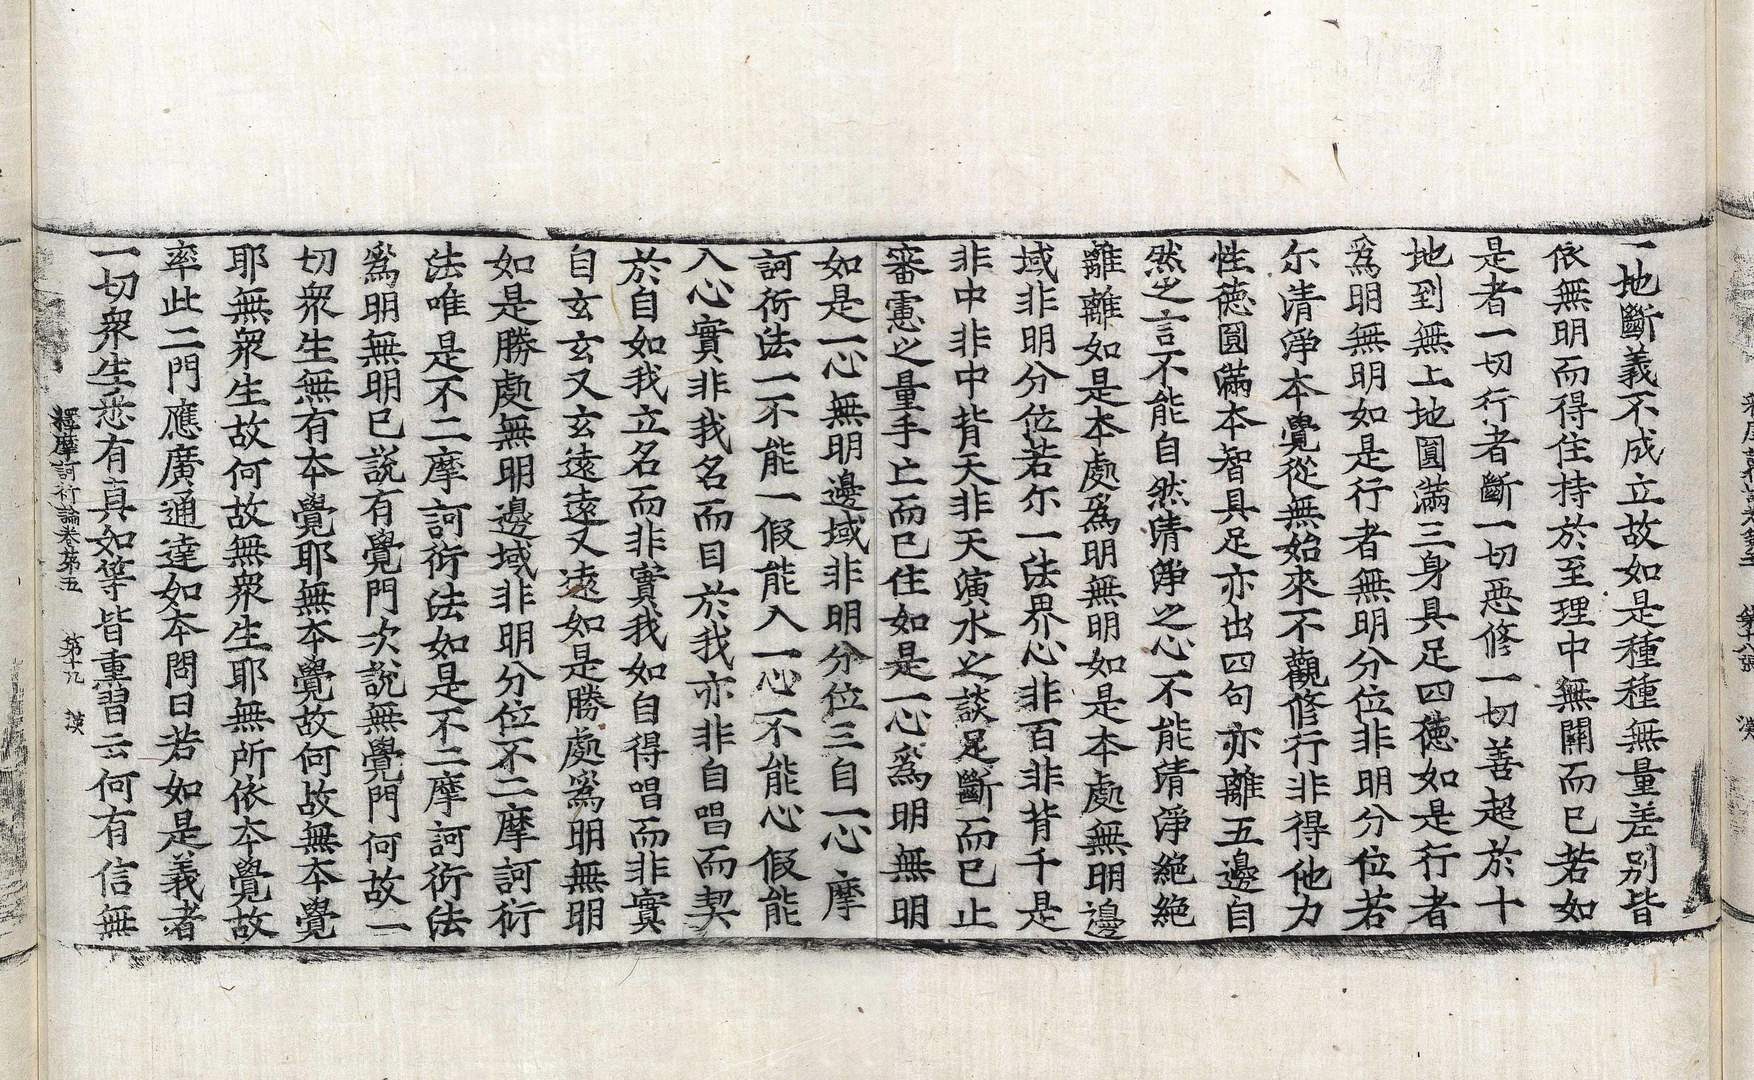 一地斷義不成立故如是種種無量差别皆
依無明而得住持於至理中無關而已若如
是者一切行者斷一切惡修一切善超於十
地到無上地圓滿三身具足四德如是行者
爲明無明如是行者無明分位非明分位若
尔清淨本覺從無始來不觀修行非得他力
性德圓滿本智具足亦出四句亦離五邊自
然之言不能自然清淨之心不能清淨絶絶
離離如是本處爲明無明如是本處無明邊
域非明分位若尔一法界心非百非背千是
非中非中背天非天演水之談足斷而已止
審慮之量手亡而已住如是一心爲明無明
如是一心無明邊域非明分位三自一心摩
訶衍法一不能一假能入一心不能心假能
入心實非我名而目於我亦非自唱而契
於自如我立名而非實我如自得唱而非實
自玄玄又玄遠遠又遠如是勝處爲明無明
如是勝處無明邊域非明分位不二摩訶衍
法唯是不二摩訶衍法如是不二摩訶衍法
爲明無明已說有覺門次說無覺門何故一
切衆生無有本覺耶無本覺故何故無本覺
耶無衆生故何故無衆生耶無所依本覺故
率此二門應廣通達如本問曰若如是義者
一切衆生悉有真如等皆熏習云何有信無
釋摩訶衍論卷第五　第十九　漠